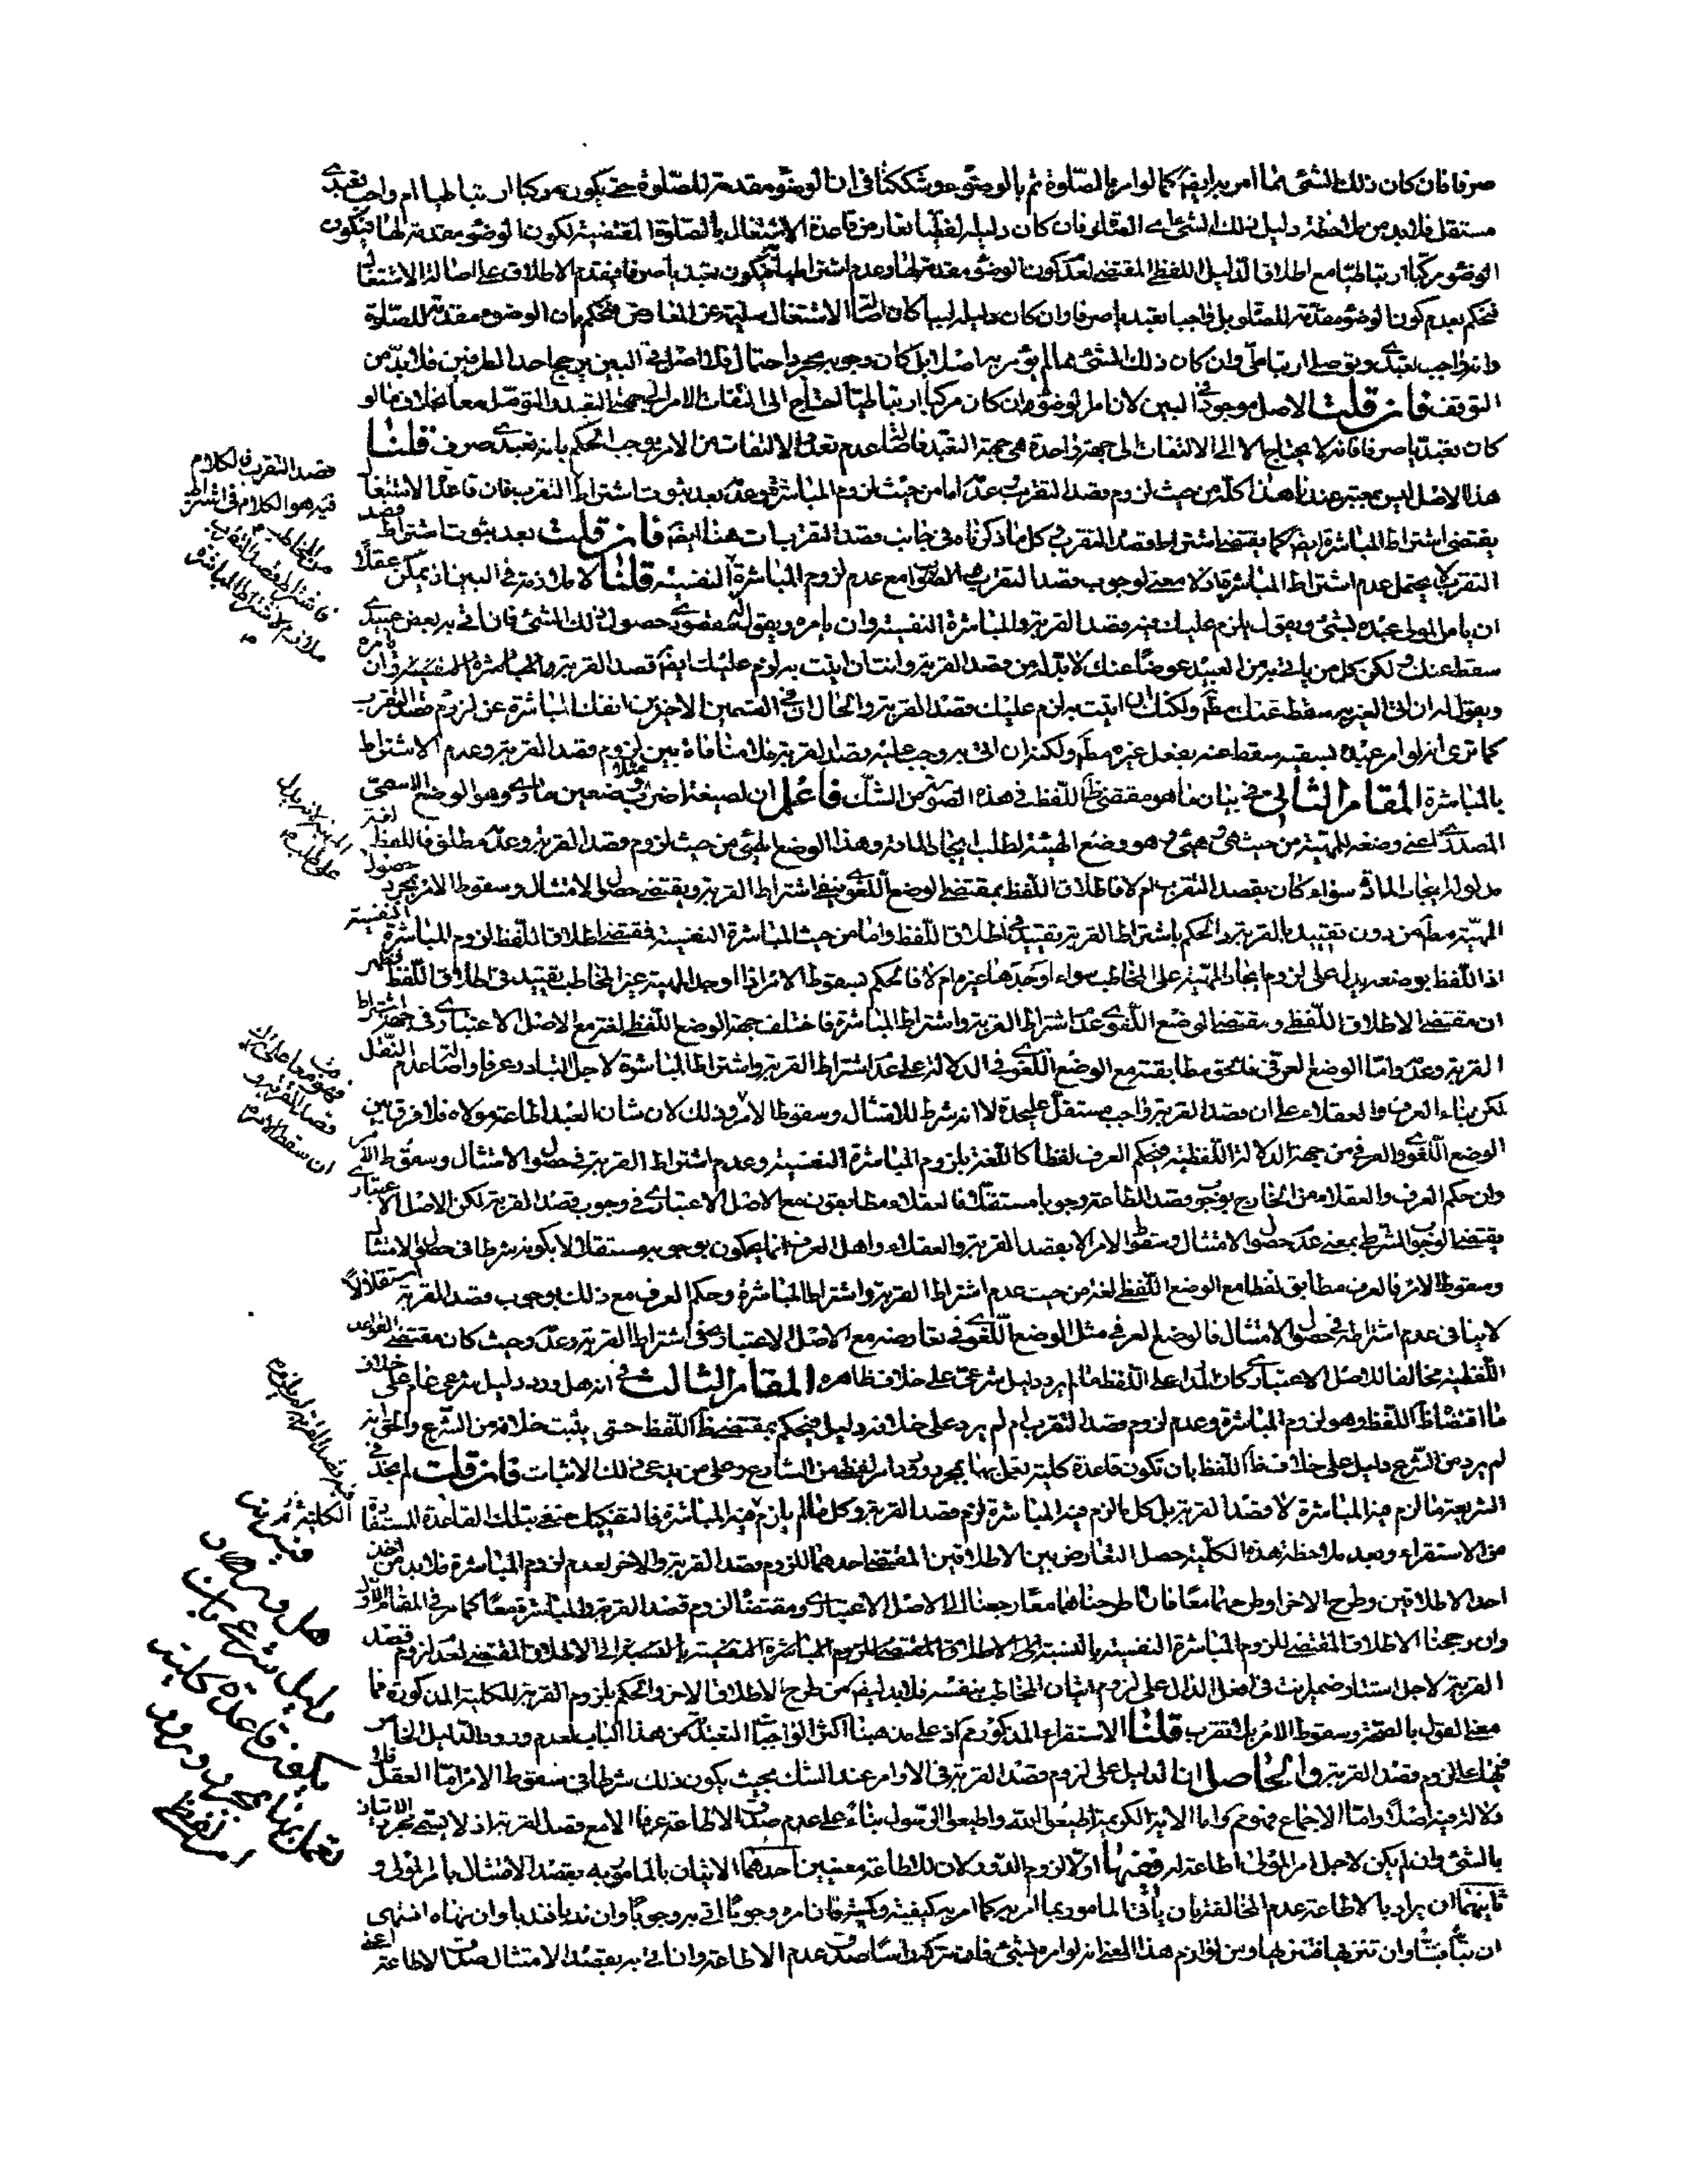 صرفا فان كان ذلك الشئ مما امر به ايضا كما لو امر بالصلوة ثم بالوضوء وشككنا فى ان الوضوء مقدمة للصلوة حتى يكون مركبا ارتباطيا ام واجب تعبدى
مستقل فلا بد من ملاحظة دليل ذلك الشئ اى المقدمة فان كان دليله لفظيا تعارض قاعدة الاشتغال بالصلوة المقتضية لكون الوضوء مقدمة لها فيكون
الوضوء مركبا ارتباطيا مع اطلاق الدليل اللفظى المقتضى لعدم كون الوضوء مقدمة لها وعدم اشتراطها فيكون تعبديا صرفا فيقدم الاطلاق على اصالة الاشتغال
فيحكم بعدم كون الوضوء مقدمة للصلوة بل واجبا تعبديا صرفا وان كان دليله لبيا كان اصالة الاشتغال سليمة عن المعارض فيحكم بان الوضوء مقدمة للصلوة
وانه واجب تعبدى وتوصلى ارتباطى وان كان ذلك الشئ مما لم يؤمر به اصلا بل كان وجوبه مجرد احتمال فلا اصل فى البين يرجح احد الطرفين فلا بد من
التوقف فان قلت الاصل موجود فى البين لان امر الوضوء ان كان مركبا ارتباطيا لاحتاج الى التفات الامر الى جهتى التعبد والتوصل معا بخلاف ما لو
كان تعبديا صرفا فانه لا يحتاج الا الى الالتفات الى جهة واحدة هى جهة التعبد فاصالة عدم تعدد الالتفات من الامر يوجب الحكم بانه تعبدى صرف قلنا
هذا الاصل ليس بمعتبر عندنا هذا كله من حيث لزوم قصد التقرب وعدمه اما من حيث لزوم المباشرة وعدمه بعد ثبوت اشتراط التقرب فان قاعدة الاشتغال
يقتضى اشتراط المباشرة ايضا كما يقتضى اشتراط قصد التقرب كل ما ذكرناه فى جانب قصد التقرب ات هنا ايضا فان قلت بعد ثبوت اشتراط قصد
التقرب لا يحتمل عدم اشتراط المباشرة اذ لا معنى لوجوب قصد التقرب مع عدم لزوم المباشرة النفسية قلنا لا ملازمة فى البين اذ يمكن عقلا
ان يامر المولى عبده بشئ ويقول يلزم عليك فيه قصد القربة والمباشرة النفسية وان يامره ويقول له مقصودى حصول ذلك الشئ فان اتى به بعض عبيدى
سقط عنك ولكن كل من ياتى به من العبيد عوضا عنك لا بد له من قصد القربة وانت ان اتيت به لزم عليك ايضا قصد القربة والمباشرة النفسية وان يامره
ويقول له ان اتى الغير به سقط عنك مطلقا ولكنك ان اتيت به لزم عليك قصد القربة والحال ان فى القسمين الاخيرين انفك المباشرة عن لزوم قصد التقرب
كما ترى انه لو امر عبده بسقيه سقط عنه بفعل غيره مطلقا ولكنه ان اتى به وجب عليه قصد القربة فلا منافاة بين لزوم قصد القربة وعدم الاشتراط
بالمباشرة المقام الثانى فى بيان ما هو مقتضى ظاهر اللفظ فى هذه الصورة من الشك فاعلم ان لصيغة اضرب مثلا وضعين مادى وهو الوضع الاسمى
المصدرى اعنى وضعه للمهية من حيث هى وهيئى وهو وضع الهيئة لطلب ايجاد المادة وهذا الوضع الهيئى من حيث لزوم قصد القربة وعدمه مطلق فاللفظ لغة
مدلوله ايجاد المادة سواء كان بقصد التقرب ام لا فاطلاق اللفظ بمقتضى الوضع اللغوى ينفى اشتراط القربة ويقتضى حصول الامتثال وسقوط الامر بمجرد حصول
المهية مطلقا من دون تقييد بالقربة والحكم باشتراط القربة تقييد فى اطلاق اللفظ واما من حيث المباشرة النفسية فمقتضى اطلاق اللفظ لزوم المباشرة النفسية
اذ اللفظ بوضعه يدل على لزوم ايجاد المهية على المخاطب سواء اوجدها غيره ام لا فالحكم بسقوط الامر اذا اوجد المهية غير المخاطب تقييد فى اطلاق اللفظ فظهر
ان مقتضى الاطلاق اللفظى ومقتضى الوضع اللغوى عدم اشتراط القربة واشتراط المباشرة فاختلف جهة الوضع اللفظى لغة مع الاصل الاعتبارى فى جهة اشتراط
القربة وعدمه واما الوضع العرفى فالحق مطابقته مع الوضع اللغوى فى الدلالة على عدم اشتراط القربة واشتراط المباشرة لاجل التبادر عرفا واصالة عدم النقل
لكن بناء العرف والعقلاء على ان قصد القربة واجب مستقل عليحدة لا انه شرط للامتثال وسقوط الامر وذلك لان شان العبد اطاعة مولاه فلا فرق بين
الوضع اللغوى والعرفى من جهة الدلالة اللفظية فيحكم العرف لفظا كاللغة بلزوم المباشرة النفسية وعدم اشتراط القربة فى حصول الامتثال وسقوط الامر
وان حكم العرف والعقلاء من الخارج بوجوب قصد الطاعة وجوبا مستقلا فالعقلاء مطابقون مع الاصل الاعتبارى فى وجوب قصد القربة لكن الاصل الاعتبارى
يقتضى الوجوب الشرطى بمعنى عدم حصول الامتثال وسقوط الامر الا بقصد القربة والعقلاء واهل العرف انما يحكمون بوجوبه مستقلا لا بكونه شرطا فى حصول الامتثال
وسقوط الامر فالعرف مطابق لفظا مع الوضع اللفظى لغة من حيث عدم اشتراط القربة واشتراط المباشرة وحكم العرف مع ذلك بوجوب قصد القربة استقلالا
لا ينافى عدم اشتراطه فى حصول الامتثال فالوضع العرفى مثل الوضع اللغوى فى تعارضه مع الاصل الاعتبارى فى اشتراط القربة وعدمه وحيث كان مقتضى القواعد
اللفظية مخالفا للاصل الاعتبارى كان المدار على اللفظ ما لم يرد دليل شرعى على خلاف ظاهره المقام الثالث فى انه هل ورد دليل شرعى عام على خلاف
ما اقتضاه ظاهر اللفظ وهو لزوم المباشرة وعدم لزوم قصد التقرب ام لم يرد على خلافه دليل فيحكم بمقتضى ظاهر اللفظ حتى يثبت خلافه من الشرع والحق انه
لم يرد من الشرع دليل على خلاف ظاهر اللفظ بان تكون قاعدة كلية يعمل بها بمجرد ورود امر لفظى من الشارع وعلى من يدعى ذلك الاثبات فان قلت لم نجد فى
الشريعة ما لزم فيه المباشرة لا قصد القربة بل كل ما لزم فيه المباشرة لزم قصد القربة وكل ما لم يلزم فيه المباشرة فالتفكيك منفى بتلك القاعدة المستفادة الكلية
من الاستقراء وبعد ملاحظة هذه الكلية حصل التعارض بين الاطلاقين المقتضى احدهما للزوم قصد القربة والاخر لعدم لزوم المباشرة فلا بد من اخذ
احد الاطلاقين وطرح الاخر او طرحهما معا فان طرحناهما معا رجعنا الى الاصل الاعتبارى ومقتضاه لزوم قصد القربة والمباشرة معا كما مر فى المقام الاول
وان رجحنا الاطلاق المقتضى للزوم المباشرة النفسية بالنسبة الى الاطلاق المقتضى لعدم لزوم قصد
القربة لاجل استناد ضمير انت فى افعل الدال على لزوم اتيان المخاطب بنفسه فلا بد ايضا من طرح الاطلاق الاخر والحكم بلزوم القربة للكلية المذكورة فما
معنى القول بالصحة وسقوط الامر بلا تقرب قلنا الاستقراء المذكور مم اذ على مذهبنا اكثر الواجبات التعبدية من هذا الباب لعدم ورود الدليل الخاص
فيها على لزوم قصد القربة والحاصل ان الدليل على لزوم قصد القربة فى الاوامر عند الشك بحيث يكون ذلك شرطا فى سقوط الامر اما العقل فلا
دلالة فيه اصلا واما الاجماع فهو مم واما الاية الكريمة اطيعوا الله واطيعوا الرسول بناء على عدم صدق الاطاعة عرفا الا مع قصد القربة اذ لا يسمى مجرد الاتيان
بالشئ وان لم يكن لاجل امر المولى اطاعة له ففيها اولا لزوم الدور لان للاطاعة معنيين احدهما الاتيان بالمامور به بقصد الامتثال بامر المولى و
ثانيهما ان يراد بالاطاعة عدم المخالفة بان ياتى المامور بما امر به كما امر به كيفية وكمية فان امره وجوبا اتى به وجوبا وان ندبا فندبا وان نهاه انتهى
ان بتا فبتا وان تنزيها فتنزيها ومن لوازم هذا المعنى انه لو امره بشئ فان تركه راسا صدق عدم الاطاعة وان اتى به بقصد الامتثال صدق الاطاعة اعنى
قصد التقرب فالكلام
فيه هو الكلام فى اشتراط
من المخاطب م
فاشتراط قصد التقرب
ملازم لاشتراط المباشرة
م
على طلب م
قصد القربة و
ان سقط الامر م
هل ورد
دليل شرعى بان
يكون قاعدة كلية
تعمل بها بمجرد ورود
امر لفظى